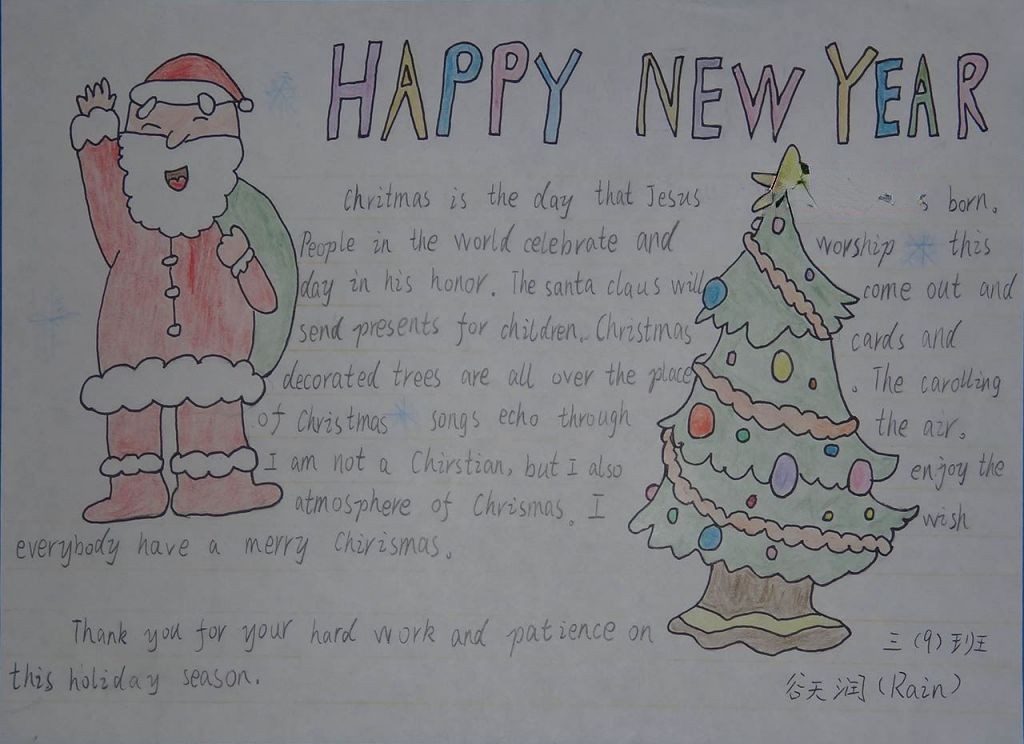 HAPPY NEW YEAR
Chritmas is the day that Jesus s born.
People in the world celebrate and worship this
day in his honor. The santa claus will come out and
send presents for children. Christmas cards and
decorated trees are all over the place. The carolling
of Christmas songs echo through the air.
I am not a Chirstian, but I also enjoy the
atmosphere of Chrismas. I wish
everybody have a merry Chirismas.
Thank you for your hard work and patience on
this holiday season.
三（9）班
谷天润（Rain）